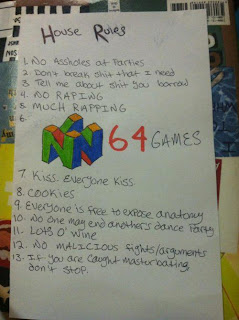 House Rules
1. No Assholes at Parties
2. Don't break shit that I need
3. Tell me about shit you borrow
4. NO RAPING
5. MUCH RAPPING
6.
64 GAMES
7. Kiss. Everyone Kiss
8. COOKIES
9. Everyone is free to expose anatomy
10. No one may end another's dance Party
11. LOTS O' Wine
12. NO MALICIOUS fights/arguments
13. If you are caught masturbating,
don't stop.